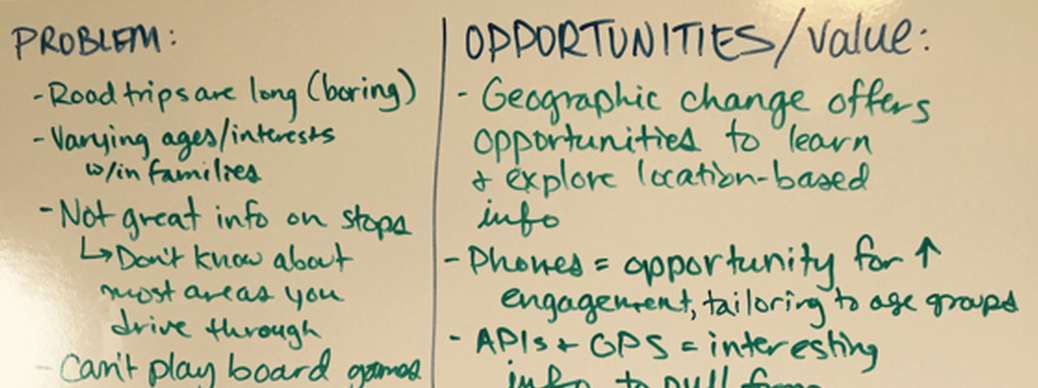 PROBLEM:
- Road trips are long (boring)
- Varying ages/interests
w/in families
- Not great info on stops
↳ Don't know about
most areas you
drive through
- Can't play board games
OPPORTUNITIES/Value:
- Geographic change offers
opportunities to learn
+ explore location-based
info
- Phones = opportunity for ↑
engagement, tailoring to age groups
- APIs + GPS = interesting
info to pull from